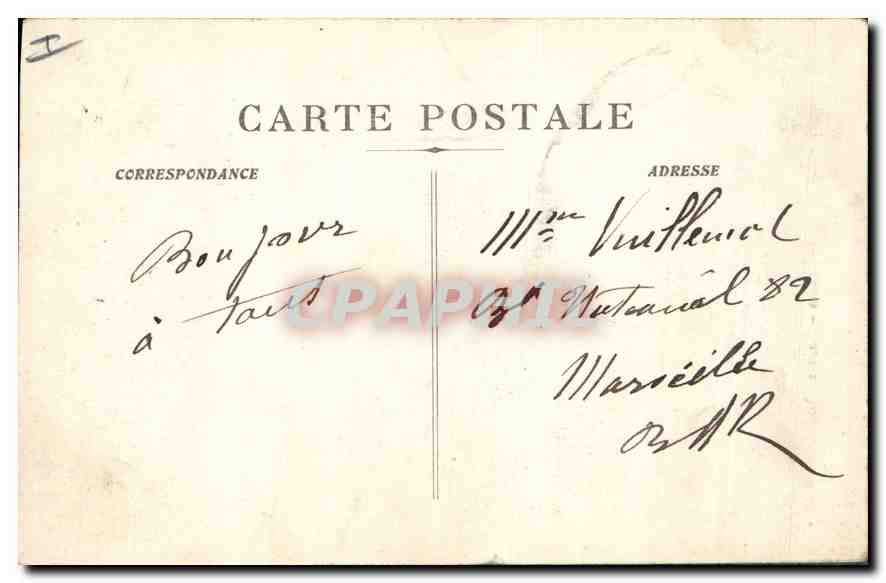 CARTE POSTALE
CORRESPONDANCE
ADRESSE
Bonjour
à tous
Mme Vuillemot
Bd National 82
Marseille
B d R
CPAPHIL